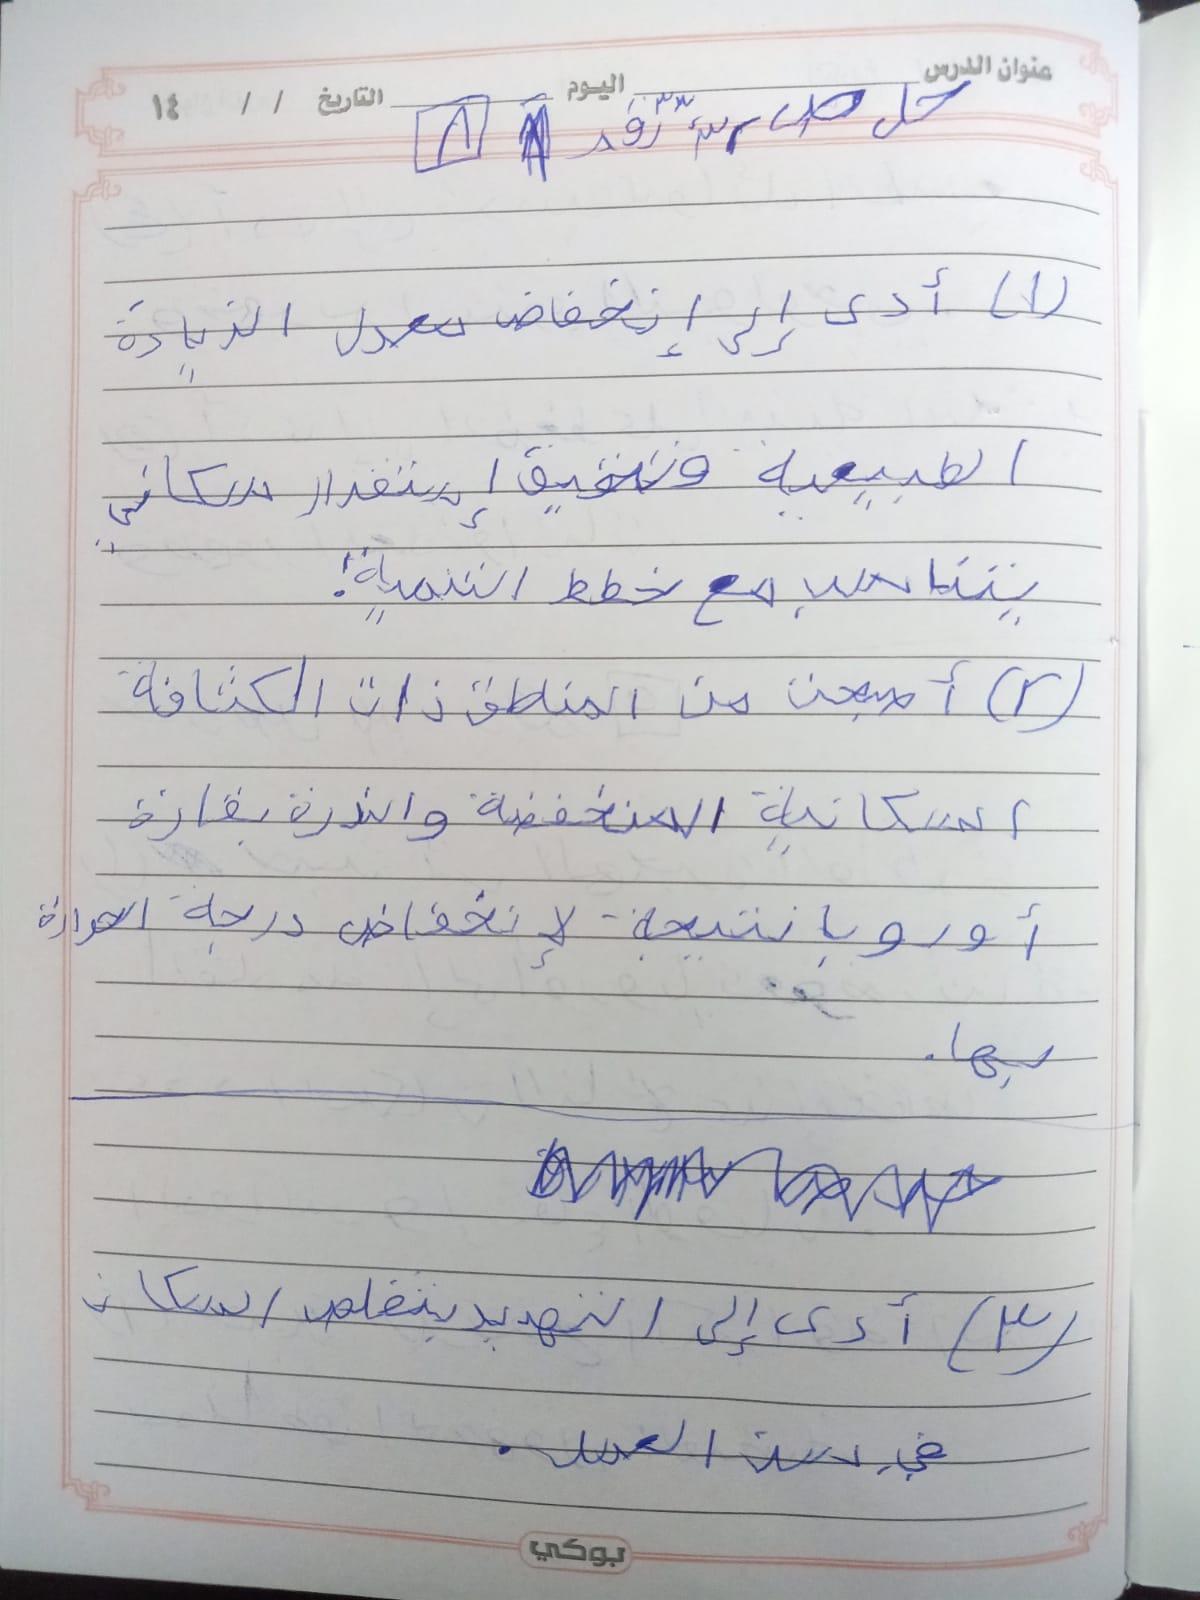 عنوان الدرس اليوم التاريخ / / ١٤
حل ص ٣٣ رقم ٨
(١) أدى إلى إنخفاض معدل الزيادة
الطبيعية وتحقيق إستقرار سكاني
يتناسب مع خطط التنمية.
(٢) أصبحت من المناطق ذات الكثافة
السكانية المنخفضة والندرة بقارة
أوروبا نتيجة لإنخفاض درجة الحرارة
بها.
(٣) أدى إلى التهديد بتقلص السكان
في سن العمل.
بوكي